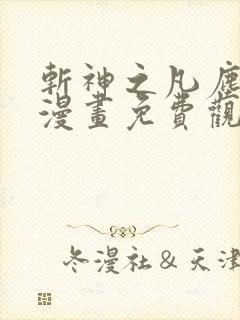 斬神之凡塵
漫畫免費觀
冬漫社&天津